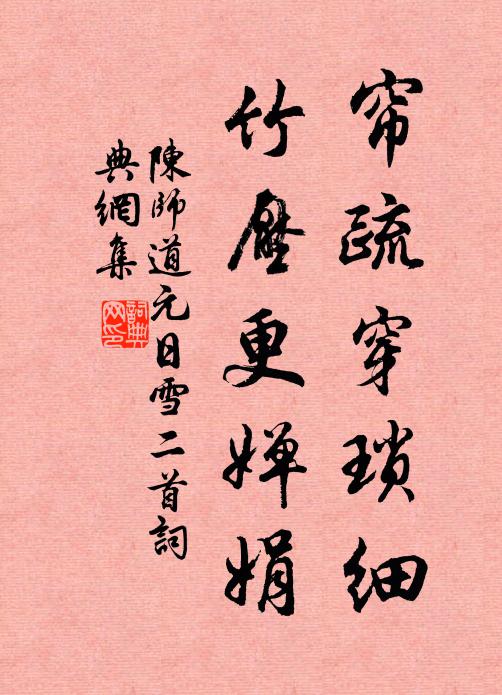 帘疏穿琐细
竹壓更嬋娟
陳師道元日雪二首詞
典網集
詞典網印